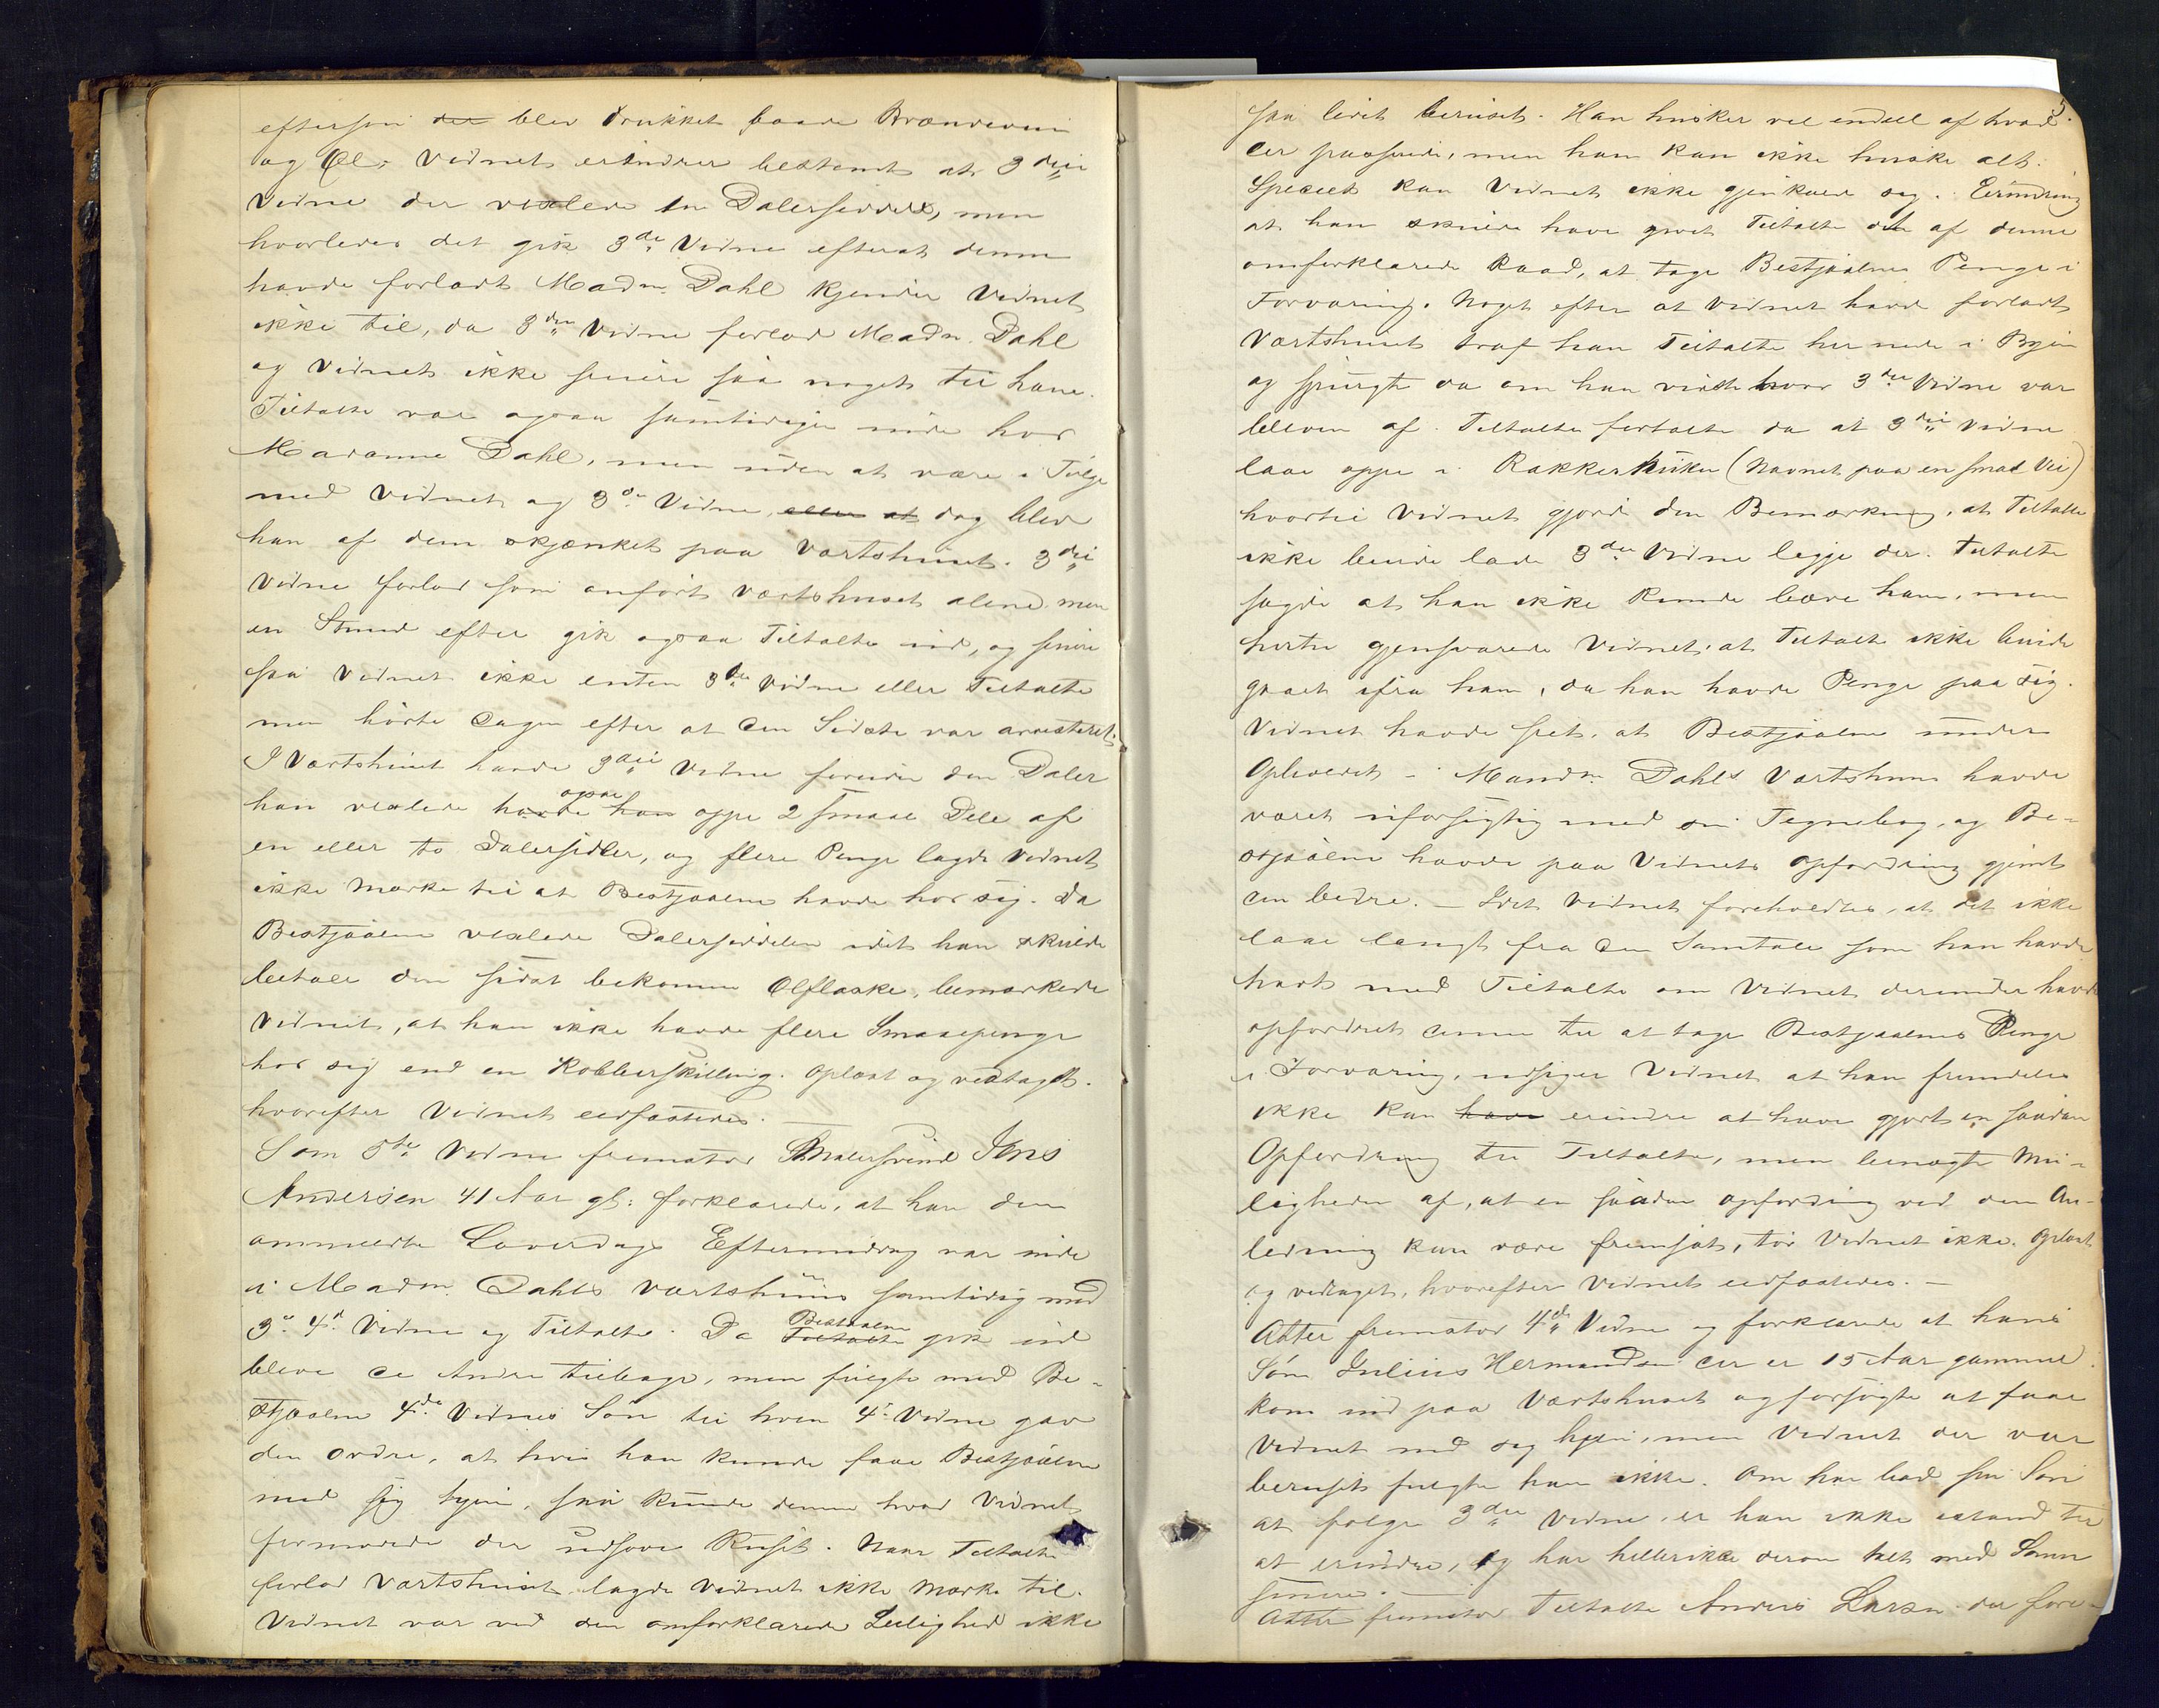 eftersom der blev drukket baade Brændeviin
og Øl. Vidnet erindrer bestemt at 3die
Vidne der vexlede en Dalerseddel, men
hvorledes det gik 3die Vidne efterat denne
havde forladt Madm. Dahl kjender Vidnet
ikke til, da 3die Vidne forlod Madm. Dahl
og Vidnet ikke senere saa noget til ham.
Tiltalte var ogsaa samtidigen inde hos
Madamme Dahl, men uden at være i Følge
med Vidnet og 3die Vidne, eller at dog blev
han af dem skjænket paa Værtshuset. 3die
Vidne forlod som anført Værtshuset alene men
en Stund efter gik ogsaa Tiltalte ud, og senere
saa Vidnet ikke enten 3die Vidne eller Tiltalte
men hørte Dagen efter at den Sidste var arresteret.
I Værtshuset havde 3die Vidne foruden den Daler
han vexlede havde ogsaa han oppe 2 smaae Dele af
en eller to Dalersedler, og flere Penge lagde Vidnet
ikke Mærke til at Bestjaalne havde hos sig. Da
Bestjaalne vexlede Dalerseddelen idet han skulde
betale den sidst bekomne Ølflaske, bemærkede
Vidnet, at han ikke havde flere Smaapenge
hos sig end en Kobberskilling. Oplæst og vedtaget.
hvorefter Vidnet eedfæstedes. —
Som 5te Vidne fremstod Malersvend Jens
Andersen 41 Aar gl: forklarede, at han den
ommeldte Løverdags Eftermiddag var inde
i Madm. Dahls Værtshuus samtidig med
3die 4de Vidne og Tiltalte. Da Tiltalte Bestjaalne gik ud
bleve de Andre tilbage, men fulgte med Be-
stjaalne 4de Vidnes Søn til hvem 4de Vidne gav
den Ordre, at hvis han kunde faae Bestjaalne
med sig hjem, saa kunde denne hvad Vidnet
formodede der udsove Ruset. Naar Tiltalte
forlod Værtshuset lagde Vidnet ikke Mærke til.
Vidnet var ved den omforklarede Leilighed ikke
5.
saa lidet beruset. Han husker vel endeel af hvad
der passerede, men han kan ikke huske alt.
Specielt kan Vidnet ikke gjenkalde sig i Erindring
at han skulde have givet Tiltalte det af denne
omforklarede Raad, at tage Bestjaalnes Penge i
Forvaring. Noget efter at Vidnet havde forladt
Værtshuset traf han Tiltalte her nede i Byen
og spurgte da om han vidste hvor 3die Vidne var
bleven af. Tiltalte fortalte da at 3die Vidne
laae oppe i Rakkerkuken (Navnet paa en smal Vei)
hvortil Vidnet gjorde den Bemærkning, at Tiltalte
ikke burde lade 3die Vidne ligge der. Tiltalte
sagde at han ikke kunde bære ham, men
hertil gjensvarede Vidnet, at Tiltalte ikke burde
gaaet ifra ham, da han havde Penge paa sig.
Vidnet havde seet, at Bestjaalne under
Opholdet i Madm. Dahls Værtshuus havde
været uforsigtig med sin Tegnebog, og Be-
stjaalne havde paa Vidnets Opfordring gjemt
den bedre. — Idet Vidnet foreholdtes, at det ikke
laae langt fra den Samtale som han havde
havt med Tiltalte om Vidnet derunder havde
opfordret denne til at tage Bestjaalnes Penge
i Forvaring, udsiger Vidnet at han fremdeles
ikke kan have erindre at have gjort en saadan
Opfordring til Tiltalte, men benægte Mu-
ligheden af, at en saadan Opfordring ved den An-
ledning kan være fremsat, tør Vidnet ikke. Oplæst
og vedtaget, hvorefter Vidnet eedfæstedes. —
Atter fremstod 4de Vidne og forklarede at hans
Søn Julius Hermandsen der er 15 Aar gammel
kom ind paa Værtshuset og forsøgte at faae
Vidnet med sig hjem, men Vidnet der var
beruset fulgte ham ikke. Om han bad sin Søn
at følge 3die Vidne er han ikke istand til
at erindre, og har hellerikke derom talt med Sønnen
senere. —
Atter fremstod Tiltalte Anders Larsen der fore-